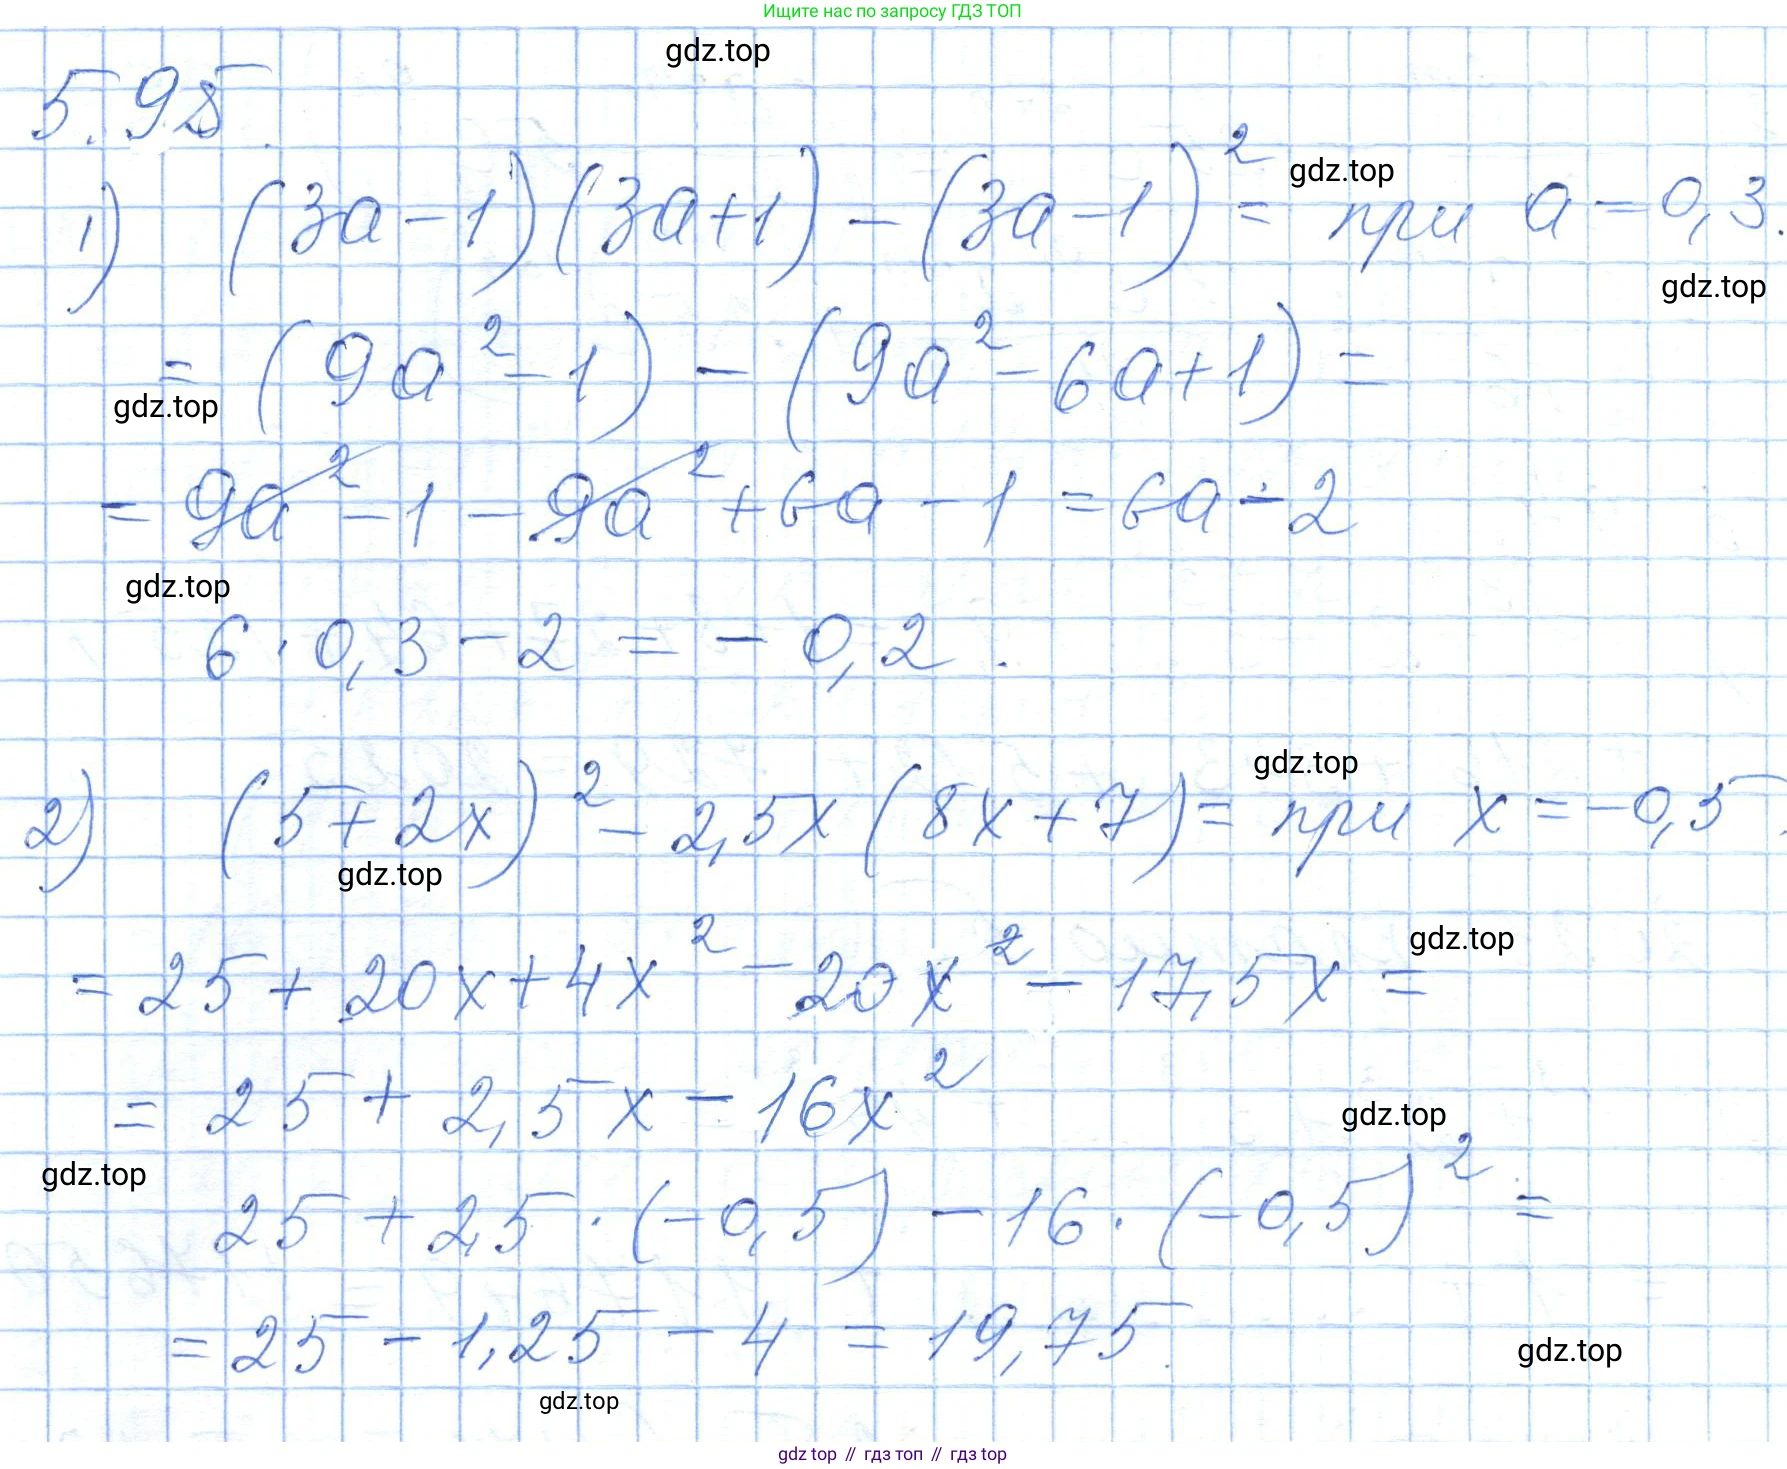 Ищите нас по запросу ГДЗ ТОП
gdz.top
5.95.
1) (3a-1)(3a+1)-(3a-1)² = при a=0,3.
gdz.top
gdz.top
= (9a²-1) - (9a²-6a+1) =
gdz.top
= 9a²-1-9a²+6a-1 = 6a-2
gdz.top
6·0,3-2 = -0,2.
2) (5+2x)²-2,5x(8x+7) = при x=-0,5.
gdz.top
gdz.top
= 25+20x+4x²-20x²-17,5x =
gdz.top
= 25+2,5x-16x²
gdz.top
gdz.top
25+2,5·(-0,5)-16·(-0,5)² =
= 25-1,25-4 = 19,75.
gdz.top
gdz.top
gdz top // гдз топ // гдз top